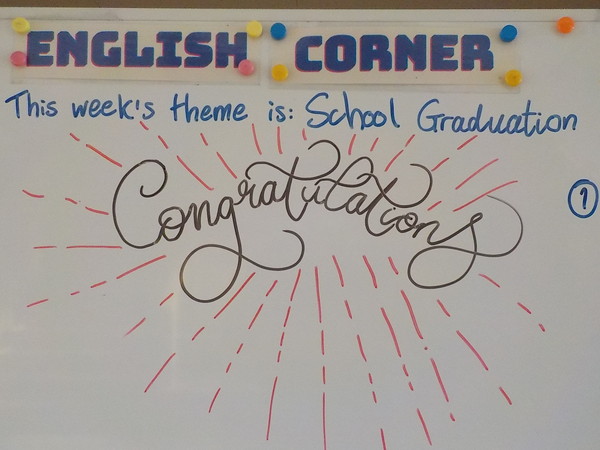 ENGLISH CORNER
This week's theme is: School Graduation
Congratulations
1